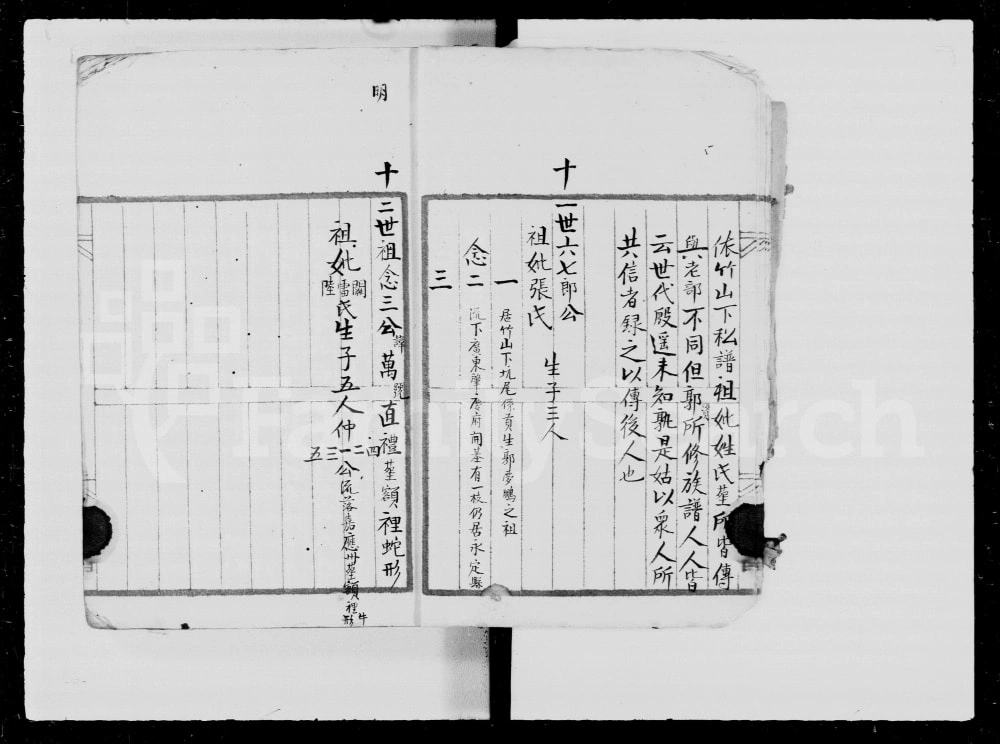 依竹山下私譜祖妣姓氏塟所皆傳
與老部不同但郭所修族譜人人皆
云世代殷遥未知孰是姑以眾人所
共信者録之以傳後人也
十一世六七郎公
祖妣張氏 生子三人
一 居竹山下坑尾係貢生郭夢鵬之祖
念二 流下廣東肇慶府開基有一枝仍居永定縣
三
明
十二世祖念三公諱萬號直禮塟額裡蛇形
祖妣闕雷陸氏生子五人仲一二三四五公流落嘉應州塟額裡牛形
FamilySearch